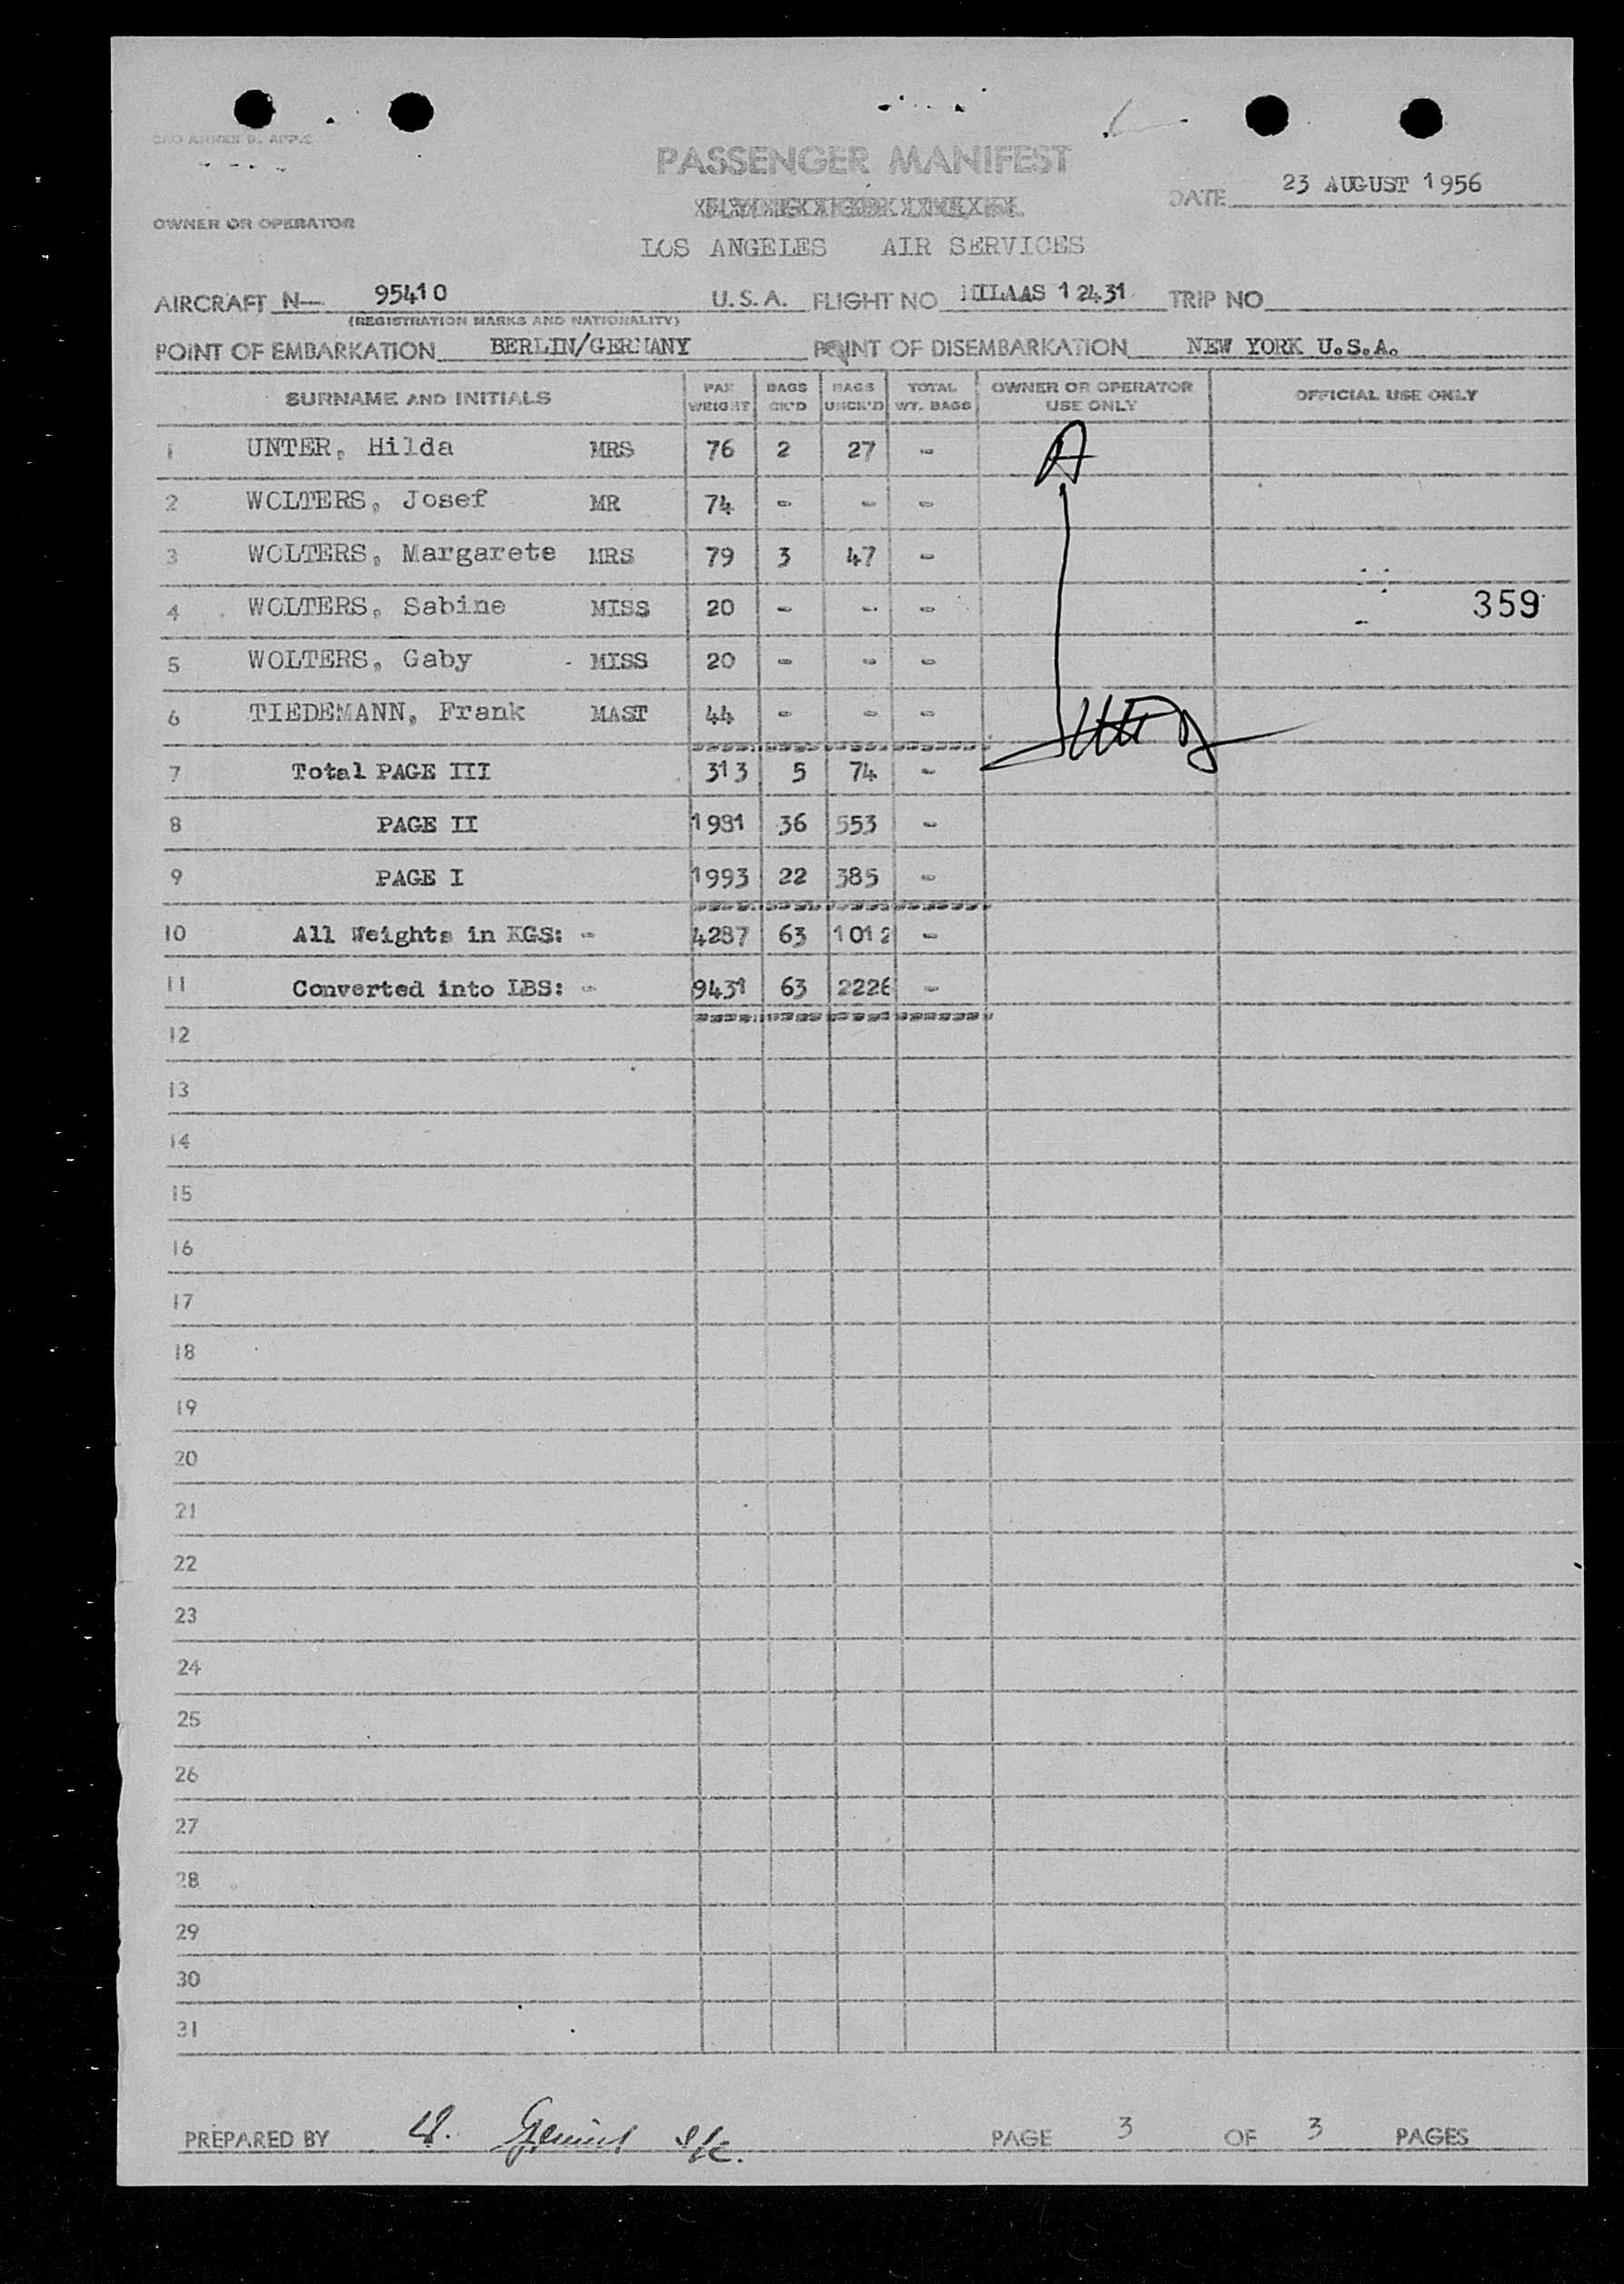 PASSENGER MANIFEST
DATE 23 AUGUST 1956
OWNER OR OPERATOR
LOS ANGELES AIR SERVICES
AIRCRAFT N— 95410 U.S.A. FLIGHT NO MILAAS 12431 TRIP NO
(REGISTRATION MARKS AND NATIONALITY)
POINT OF EMBARKATION BERLIN/GERMANY POINT OF DISEMBARKATION NEW YORK U.S.A.
SURNAME AND INITIALS PAX WEIGHT BAGS CK'D BAGS UNCK'D TOTAL WT. BAGS OWNER OR OPERATOR USE ONLY OFFICIAL USE ONLY
1 UNTER, Hilda MRS 76 2 27 -
2 WOLTERS, Josef MR 74 - - -
3 WOLTERS, Margarete MRS 79 3 47 -
4 WOLTERS, Sabine MISS 20 - - - 359
5 WOLTERS, Gaby MISS 20 - - -
6 TIEDEMANN, Frank MAST 44 - - -
7 Total PAGE III 313 5 74 -
8 PAGE II 1981 36 553 -
9 PAGE I 1993 22 385 -
10 All Weights in KGS: - 4287 63 1012 -
11 Converted into LBS: - 9431 63 2226 -
12
13
14
15
16
17
18
19
20
21
22
23
24
25
26
27
28
29
30
31
PREPARED BY PAGE 3 OF 3 PAGES